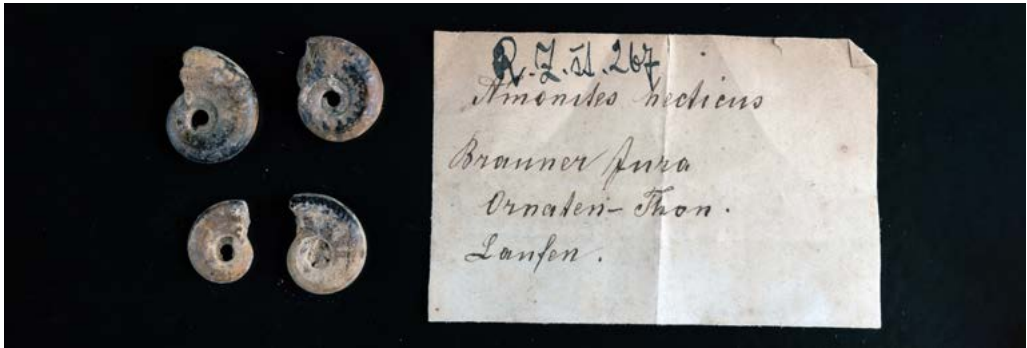 R.Z.št. 267
Amonites hecticus
Brauner Jura
Ornaten-Thon.
Laufen.